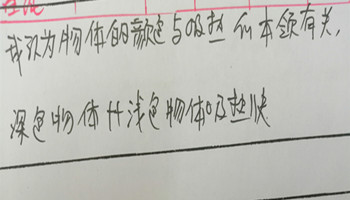 我认为物体的颜色与吸热的本领有关,
深色物体比浅色物体吸热快